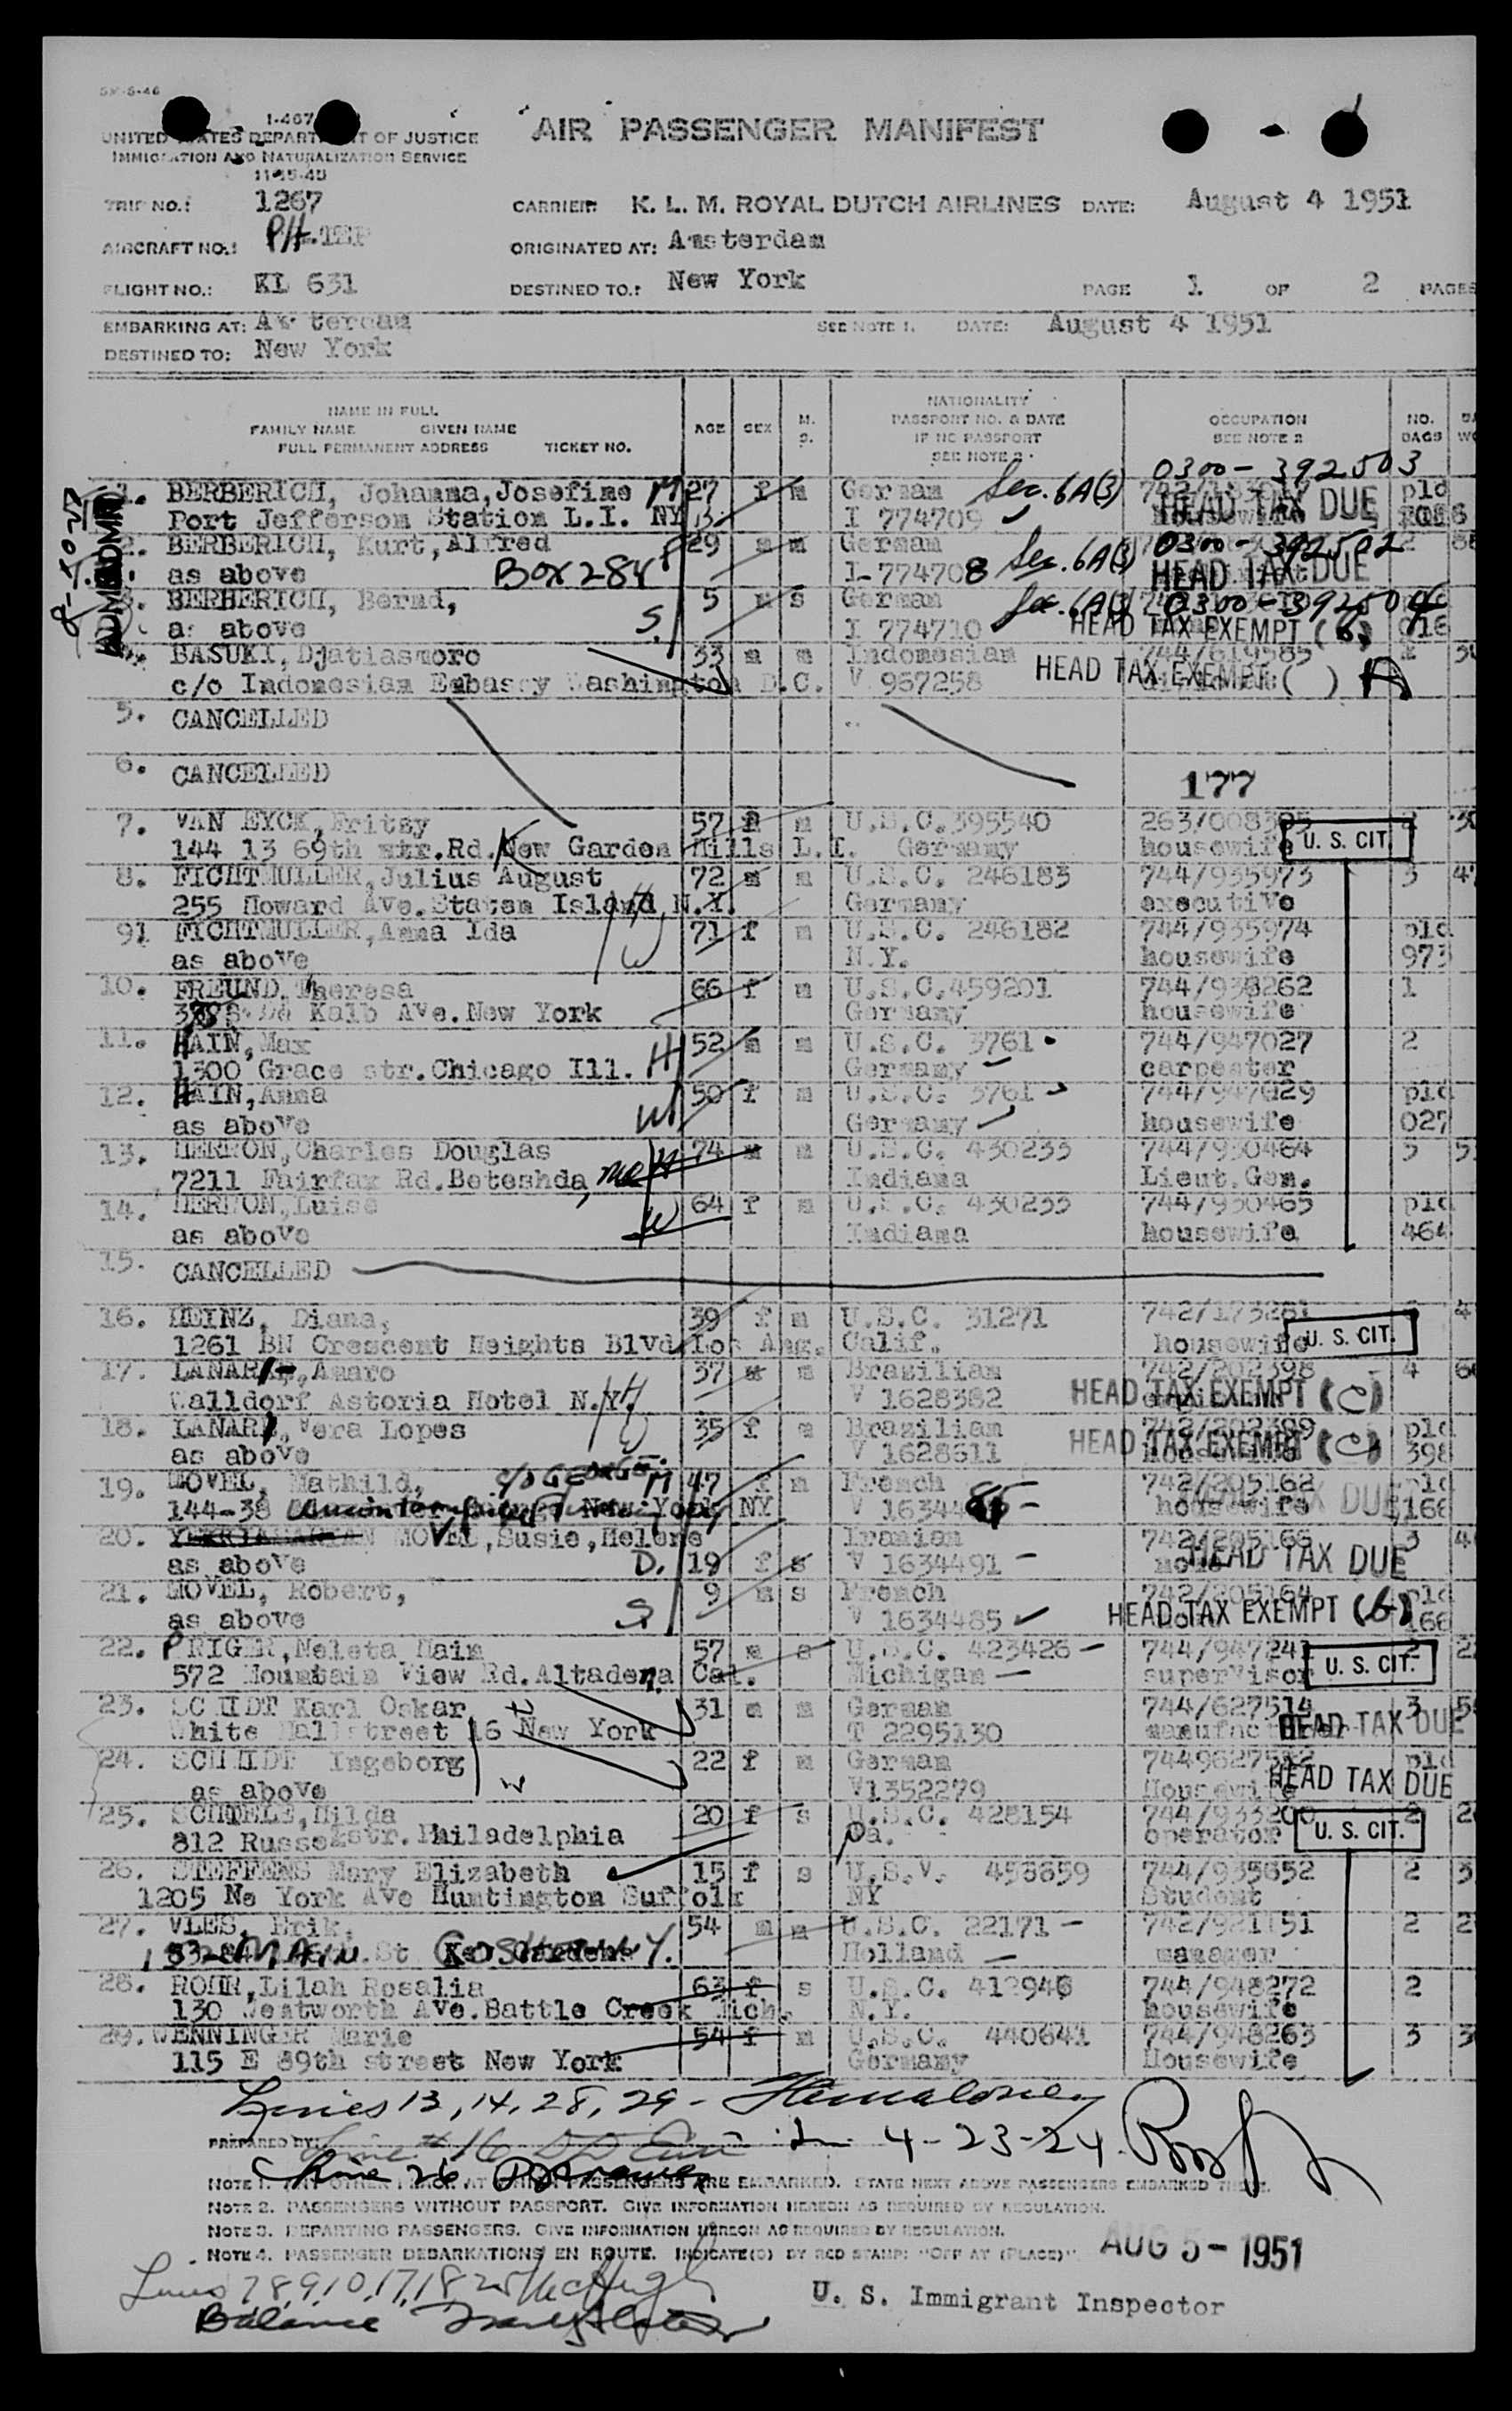 I-467
UNITED STATES DEPARTMENT OF JUSTICE
IMMIGRATION AND NATURALIZATION SERVICE
AIR PASSENGER MANIFEST
TRIP NO.: 1267
CARRIER: K. L. M. ROYAL DUTCH AIRLINES DATE: August 4 1951
AIRCRAFT NO.: PH-
ORIGINATED AT: Amsterdam
FLIGHT NO.: KL 631
DESTINED TO.: New York
PAGE 1. OF 2 PAGES
EMBARKING AT: Amsterdam
SEE NOTE 1. DATE: August 4 1951
DESTINED TO: New York
NAME IN FULL
FAMILY NAME GIVEN NAME
FULL PERMANENT ADDRESS TICKET NO.
AGE SEX M. S.
NATIONALITY
PASSPORT NO. & DATE
IF NO PASSPORT
SEE NOTE 2
OCCUPATION
SEE NOTE 2
NO. BAGS
0300-392503
1. BERBERICH, Johanna, Josefine M 27 f m German Sec. 6A(3) HEAD TAX DUE pld
Port Jefferson Station L.I. NY I 774709 housewife
2. BERBERICH, Kurt, Alfred 29 m m German Sec. 6A(3) 0300-392502 2
as above Box 284 I-774708 HEAD TAX DUE
3. BERBERICH, Bernd, S. 5 m s German Sec. 6A(3) 0300-392504
as above I 774710 HEAD TAX EXEMPT (b) 016
BASUKI, Djatiasmoro 33 m m Indonesian 744/619585
c/o Indonesian Embassy Washington D.C. V 967258 HEAD TAX EXEMPT ( ) A
5. CANCELLED
6. CANCELLED
177
7. VAN EYCK, Fritzy 57 f m U.S.C. 395540 263/008395 2
144 13 69th str.Rd. New Garden Hills L.I. Germany housewife U. S. CIT.
8. FICHTMULLER, Julius August 72 m m U.S.C. 246183 744/935973 3
255 Howard Ave. Staten Island, N.Y. H Germany executive
9. FICHTMULLER, Anna Ida 71 f m U.S.C. 246182 744/935974 pld
as above W N.Y. housewife 973
10. FREUND, Theresa 66 f m U.S.C. 459201 744/938262 1
De Kalb Ave. New York Germany housewife
11. HAIN, Max H 52 m m U.S.C. 3761 744/947027 2
1300 Grace str. Chicago Ill. Germany carpenter
12. HAIN, Anna W 50 f m U.S.C. 3761 744/947029 pld
as above Germany housewife 027
13. HERRON, Charles Douglas 74 m m U.S.C. 430233 744/930464 3
7211 Fairfax Rd. Beteshda, Md H Indiana Lieut. Gen.
14. HERRON, Luise 64 f m U.S.C. 430233 744/930465 pld
as above W Indiana housewife 464
15. CANCELLED
16. HEINZ, Diana, 39 f m U.S.C. 31271 742/173281
1261 BN Crescent Heights Blvd Los Ang. Calif. housewife U. S. CIT.
17. LANARI, Amaro 37 m m Brazilian 742/202398 4
Walldorf Astoria Hotel N.Y. H V 1628382 HEAD TAX EXEMPT (C)
18. LANARI, Vera Lopes 35 f m Brazilian 742/202399 pld
as above W V 1628611 HEAD TAX EXEMPT (C) 398
19. MOVEL, Mathild, c/o George M 47 f m French 742/205162 pld
144-38 New York, NY V 16344 housewife TAX DUE 166
20. MOVEL, Susie, Helene Iranian 742/205166 3
as above D. 19 f s V 1634491 HEAD TAX DUE
21. MOVEL, Robert, 9 m s French 742/205164 pld
as above S. V 1634485 HEAD TAX EXEMPT (b) 166
22. PRIGER, Meleta Main 57 m s U.S.C. 423426 744/94724 2
572 Mountain View Rd. Altadena Cal. Michigan supervisor U. S. CIT.
23. SCHMIDT Karl Oskar 31 m m German 744/627514 3
White Hallstreet 16 New York H T 2295130 manufacturer HEAD TAX DUE
24. SCHMIDT Ingeborg 22 f m German pld
as above W V1352279 Housewife HEAD TAX DUE
25. Hilda 20 f s U.S.C. 428154 744/933200 2
812 str. Philadelphia Pa. operator U. S. CIT.
26. STEFFENS Mary Elizabeth 15 f s U.S.V. 453659 744/935652 2
1205 Ne York Ave Huntington Suffolk NY Student
27. VLES, Erik, 54 m m U.S.C. 22171 742/921151 2
MAIN St N.Y. Holland manager
28. ROHR, Lilah Rosalia 63 f s U.S.C. 412946 744/948272 2
130 Wentworth Ave. Battle Creek Mich. N.Y. housewife
29. WENNINGER Marie 54 f m U.S.C. 440641 744/948263 3
115 E 89th street New York Germany Housewife
Lines 13, 14, 28, 29 -
PREPARED BY: Line #16
4-23-24
Line 26
NOTE 1. IF ANY OTHER PLACE AT WHICH PASSENGERS ARE EMBARKED. STATE NEXT ABOVE PASSENGERS EMBARKED THERE.
NOTE 2. PASSENGERS WITHOUT PASSPORT. GIVE INFORMATION HEREON AS REQUIRED BY REGULATION.
NOTE 3. DEPARTING PASSENGERS. GIVE INFORMATION HEREON AS REQUIRED BY REGULATION.
NOTE 4. PASSENGER DEBARKATIONS EN ROUTE. INDICATE(D) BY RED STAMP: "OFF AT (PLACE)".
AUG 5 - 1951
Lines 7, 8, 9, 10, 17, 18, 25
U. S. Immigrant Inspector
Balance